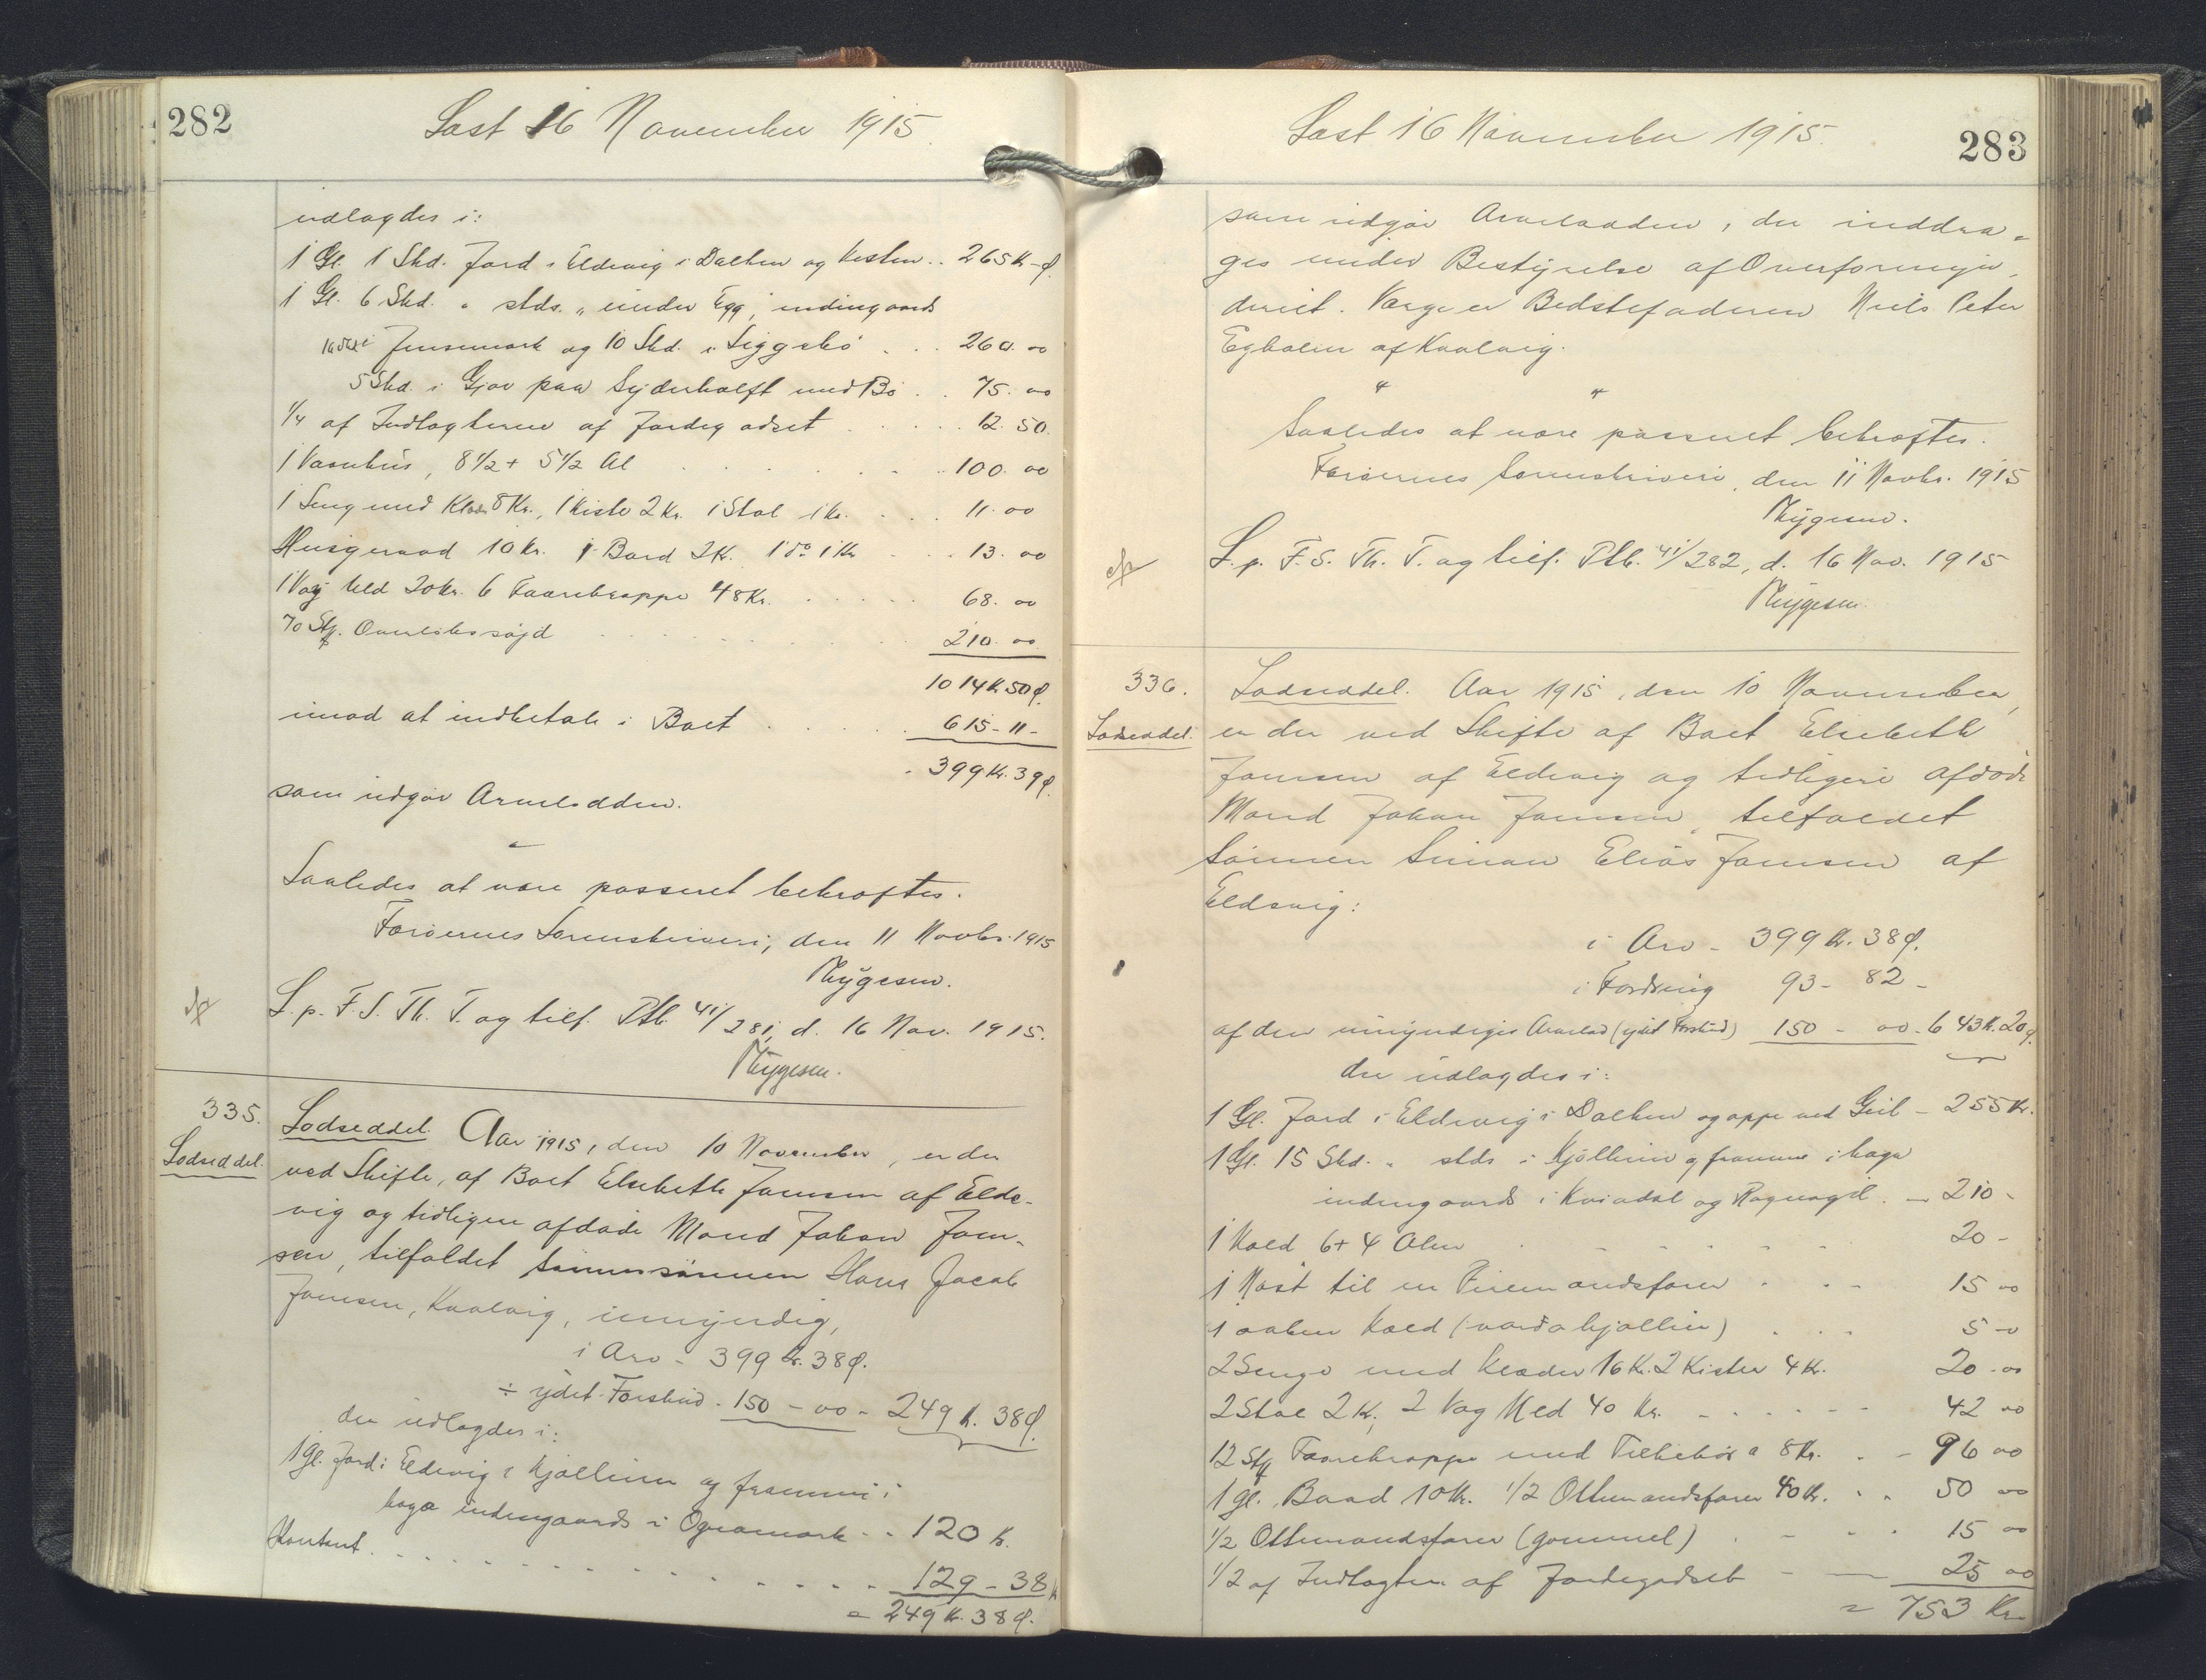 282
Læst 16 November 1915.
udlagdes i:
1 Gl. 1 Skd. Jord i Eldevig i Dalhen og Vesten .. 265 Kr - Ø.
1 Gl. 6 Skd. " stds. " under Egg, indengaards
i Jensemark og 10 Skd. i Siggebø . . . 260. 00
5 Skd. i Gjov paa Syderhalft med Bø . . 75. 00
1/4 af Indlagterne af Jordegodset . . . . . 12. 50.
1 Vaanhus, 8 1/2 + 5 1/2 Al . . . . . . . 100. 00
1 Seng med Klæder 8 Kr., 1 Kiste 2 Kr. 1 Stol 1 Kr. . . . 11. 00
Husgeraad 10 Kr. 1 Bord 2 Kr. 1 do 1 Kr . . . 13. 00
1 Vog Uld 20 Kr. 6 Faarekroppe 48 Kr. . . . . . 68. 00
70 Stk. . . . . . . . . 210. 00
1014 Kr 50 Ø.
imod at indbetale i Boet . . . . . 615 - 11 -
399 Kr. 39 Ø.
som udgør Arvelodden.
"
Saaledes at være passeret bekræftes.
Færøernes Sorenskriveri, den 11 Novbr. 1915
Mygesen.
L. p. F. S. Th. T. og tilf. Ptb. 41/281, d. 16 Nov. 1915.
Mygesen.
335.
Lodseddel.
Lodseddel. Aar 1915, den 10 November, er der
ved Skifte, af Boet Elsebeth Joensen af Elde-
vig og tidligere afdøde Mand Johan Joen-
sen, tilfaldet Sønnesønnen Hans Jacob
Joensen, Kvalvig, umyndig,
i Arv - 399 Kr. 38 Ø.
÷ ydet Forskud - 150 - 00 - 249 Kr. 38 Ø.
der udlagdes i:
1 Gl. Jord i Eldevig i Kjøllinn og frammi i
haga indengaards i Ognamark . . 120 Kr.
Kontant . . . . . . . . . . . 129 - 38
= 249 Kr. 38 Ø.
Læst 16 November 1915.
283
som udgør Arvelodden, der inddra-
ges under Bestyrelse af Overformyn-
deriet. Værge er Bedstefaderen Niels Peter
Egholm af Kvalvig.
" "
Saaledes at være passeret bekræftes.
Færøernes Sorenskriveri, den 11 Novbr. 1915
Mygesen.
L. p. F. S. Th. T. og tilf. Ptb. 41/282, d. 16 Nov. 1915
Mygesen.
336.
Lodseddel.
Lodseddel. Aar 1915, den 10 November,
er der ved Skifte af Boet Elsebeth
Joensen af Eldevig og tidligere afdøde
Mand Johan Joensen, tilfaldet
Sønnen Simon Elias Joensen af
Eldevig:
i Arv - 399 Kr. 38 Ø.
i Fordring 93 - 82 -
af den umyndiges Arvelod (ydet Forskud) 150 - 00 - 643 Kr. 20 Ø.
der udlagdes i:
1 Gl. Jord i Eldevig i Dalhen og oppe ved Geil - 255 Kr.
1 Gl. 15 Skd. " stds i Kjøllinn og framme i haga
indengaards i Kviadal og Ragnagil . - 210 -
1 Kold 6 + 4 Alen . . . . . . 20 -
1 Nøst til en Firemandsfarer . . . 15 00
1 aaben Kold (vardakjallir) . . . 5 -
2 Senge med Klæder 16 Kr. 2 Kister 4 Kr. 20 - 00
2 Stole 2 Kr, 2 Vog Uld 40 Kr. - . . . - - 42 00
12 Stk Faarekroppe med Tilbehør a 8 Kr. . - 96 00
1 gl. Baad 10 Kr. 1/2 Ottemandsfarer 40 Kr. . . 50 00
1/2 Ottemandsfarer (gammel) . - . . 15 00
1/2 af Indlagterne af Jordegodset - — 25 00
= 753 Kr.